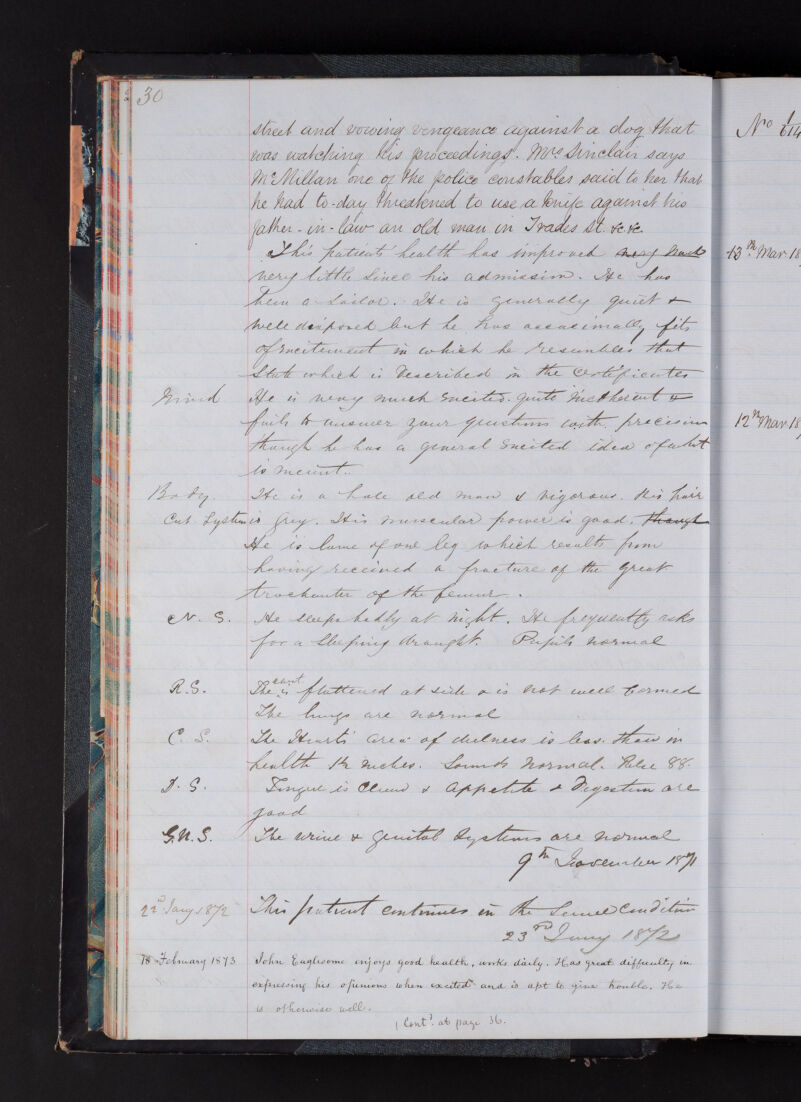 30
street and vowing vengeance against a dog that
was watching his proceedings. Mrs Sinclair says
McMillan one of the police constables said to her that
he had to-day threatened to use a knife against his
father-in-law an old man in Trades St. &c &c.
This patients health has improved very much
very little since his admission. He has
been a Sailor. He is generally quiet &
well disposed but he has occasionally fits
of excitement in which he resembles that
State which is described in the certificates
Mind He is very much excited. quite incoherent &
fails to answer your questions with precision
though he has a general excited idea of what
is meant.
Body. He is a hale old man & vigorous. His hair
Cut. System is grey. His muscular power is good. though
He is lame of one leg which results from
having received a fracture of the great
trochanter of the femur.
N. S. He sleeps badly at night. He frequently asks
for a sleeping draught. Pupils normal
R.S. The chest is flattened at side & is not well formed
The lungs are normal
C. S. The Heart's area of dulness is less than in
health 1½ inches. Sounds normal. Pulse 88.
D. S. Tongue is clean & appetite & Digestion are
good
G.U.S. The urine & genital systems are normal
9th November 1871
22d Jany 1872 This patient continues in the same condition
23rd Jany 1872
18 February 1873 John Eaglesome enjoys good health, works daily. Has great difficulty in
expressing his opinions when excited and is apt to give trouble. He
is otherwise well.
Contd. at page 36.
No 1/614
13th Mar 18
12th Mar. 18